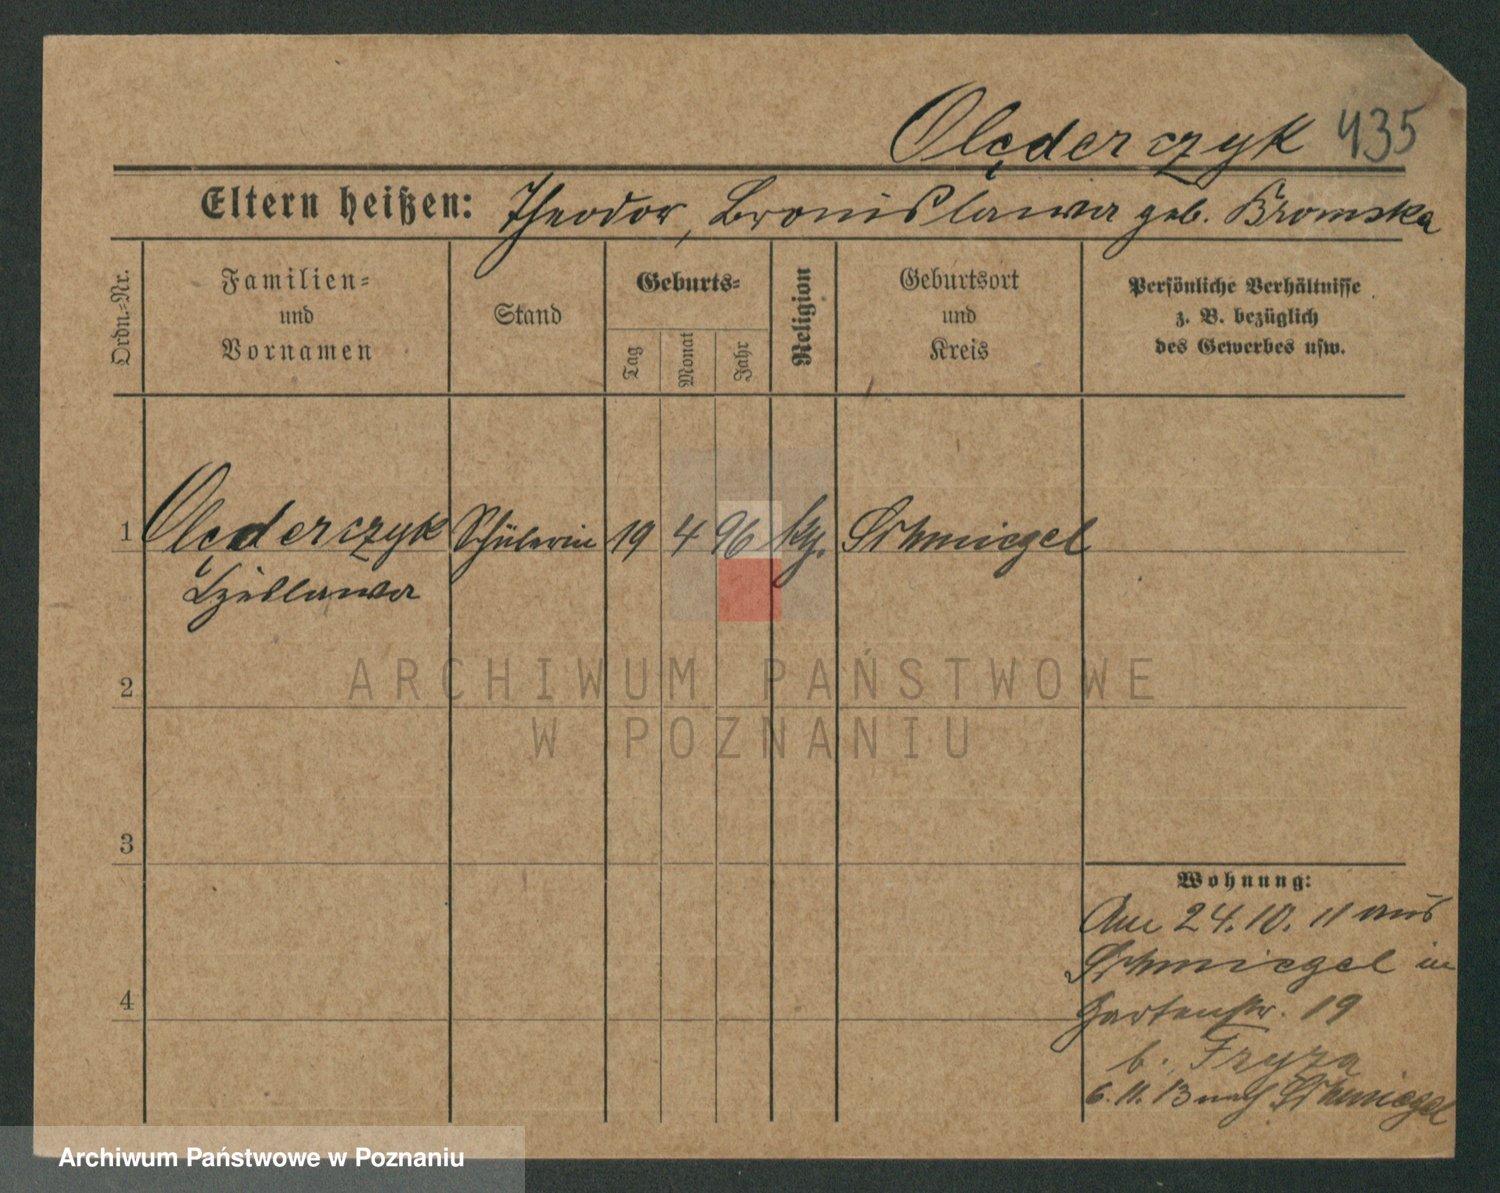 Olęderczyk 435
Eltern heißen: Theodor, Bronislawa geb. Bromska
Ordn.-Nr.
Familien-
und
Vornamen
Stand
Geburts-
Tag
Monat
Jahr
Religion
Geburtsort
und
Kreis
Persönliche Verhältnisse
z. B. bezüglich
des Gewerbes usw.
1 Olęderczyk Schülerin 19 4 96 kth. Schmiegel
2
3
4
Wohnung:
Am 24. 10. 11 aus
Schmiegel in
Gartenstr. 19
b. Fryza
6. 11. 13 nach Schmiegel
ARCHIWUM PAŃSTWOWE
W POZNANIU
Archiwum Państwowe w Poznaniu